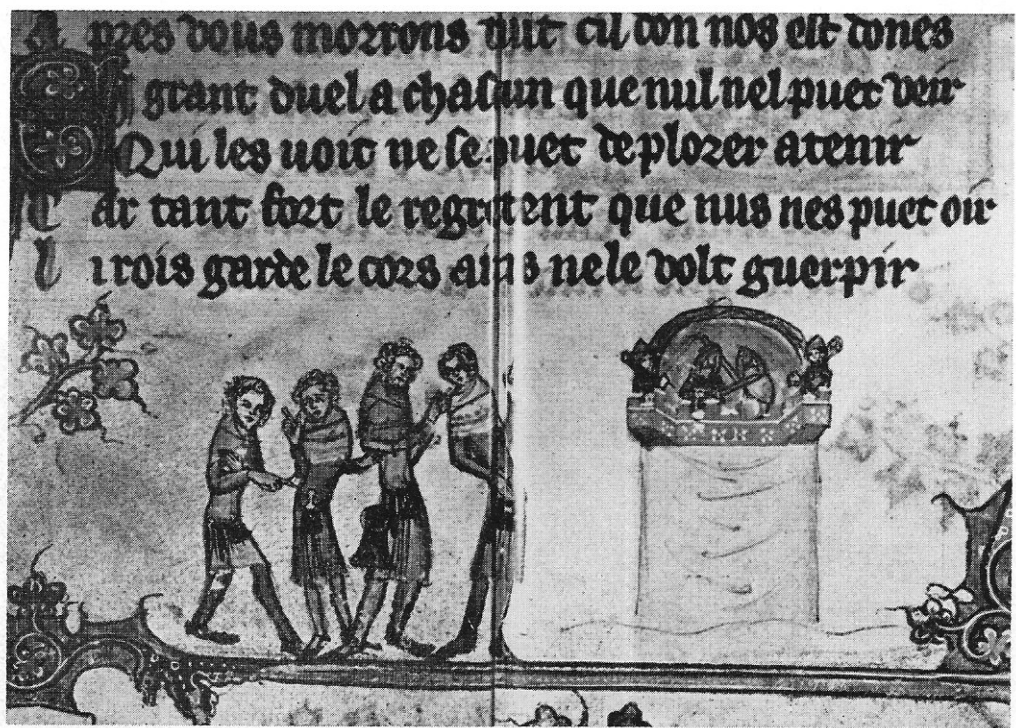 A pres vous morrons tuit cil don nos est dones
grant duel a chasun que nul nel puet veir
Qui les uoit ne se puet de plorer atenir
C ar tant fort le regretent que nus nes puet oir
l i rois garde le cors ains nele volt guerpir